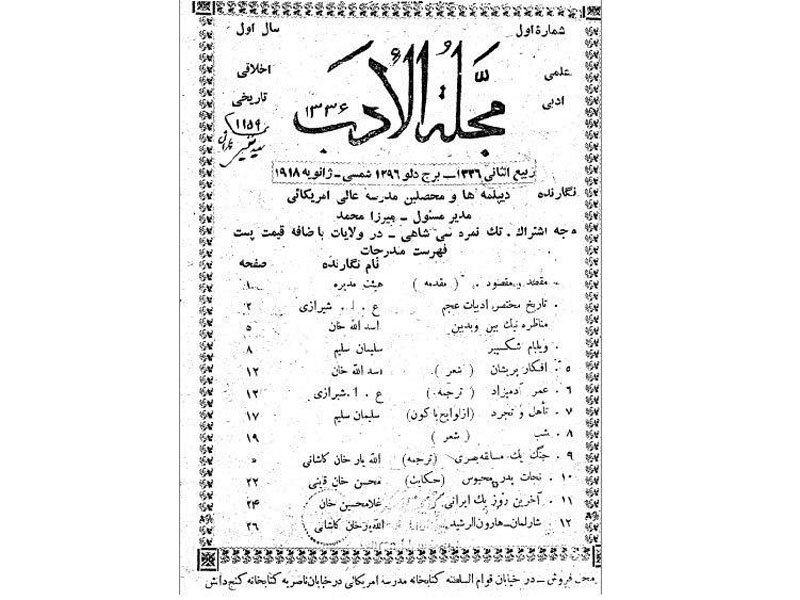 شمارهٔ اول
سال اول
علمی
ادبی
مجلة الأدب
۱۳۳۶
اخلاقی
تاریخی
۱۱۵۹
ربیع الثانی ۱۳۳۶ ـ برج دلو ۱۲۹۶ شمسی ـ ژانویه ۱۹۱۸
نگارنده دیپلمه ها و محصلین مدرسه عالی امریکائی
مدیر مسئول ـ میرزا محمد
وجه اشتراك . تك نمره سی شاهی ـ در ولایات باضافه قیمت پست
فهرست مندرجات
نام نگارنده صفحه
مقصد و مقصود . ( مقدمه ) هیئت مدیره ۱
. تاریخ مختصر ادبیات عجم ع . ا . شیرازی ۲
مناظره نیك بین و بدبین اسد الله خان ۵
. ویلیام شکسپیر سلیمان سلیم ۸
۵ . افکار پریشان ( شعر ) . اسد الله خان ۱۲
۶ . عمر آدمیزاد ( ترجمه . ) ع . ا . شیرازی ۱۳
۷ . تأهل و تجرد ( از لوایح باکون ) سلیمان سلیم ۱۷
۸ . شب ( شعر ) ۱۹
۹ . جنگ یك مسابقه بصری ( ترجمه ) الله یار خان کاشانی
۱۰ . نجات پدر محبوس ( حکایت ) محسن خان ۲۲
۱۱ . آخرین روز یك ایرانی غلامحسین خان ۲۴
۱۲ . شارلمان ـ هارون الرشید اللهیار خان کاشانی ۲۶
محل فروش ـ در خیابان قوام السلطنه کتابخانه مدرسه امریکائی در خیابان ناصریه کتابخانه گنج دانش